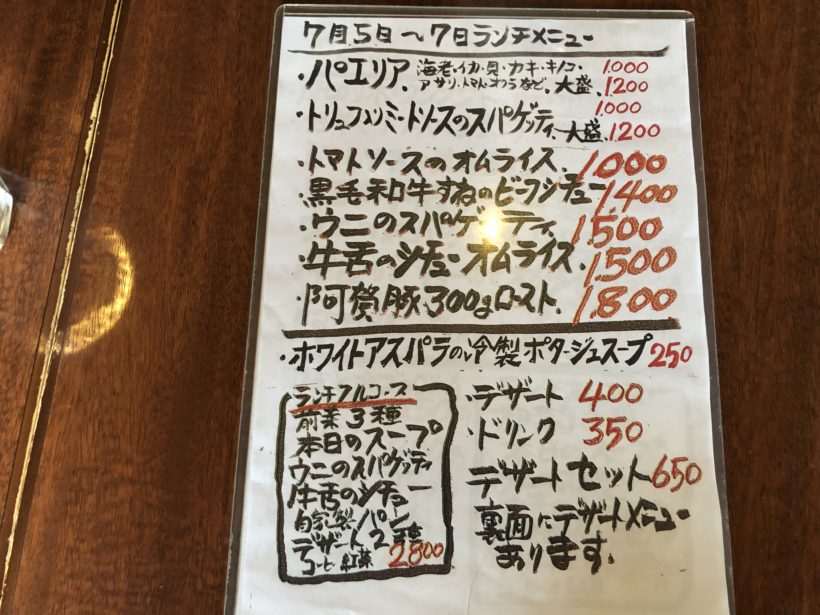 7月5日〜7日ランチメニュー
・パエリア、海老・イカ・貝・カキ・キノコ・ 1.000
アサリ・トマト・オクラなど、大盛、1200
1.000
・トリュフ入りミートソースのスパゲッティ、大盛、1200
・トマトソースのオムライス、1000
・黒毛和牛すねのビーフシチュー、1400
・ウニのスパゲッティ、1500
・牛舌のシチューオムライス、1,500
・阿賀豚300gロースト、1,800
・ホワイトアスパラの冷製ポタージュスープ 250
ランチフルコース
前菜3種
本日のスープ
ウニのスパゲッティ
牛舌のシチュー
自家製パン
デザート2種
コーヒー 紅茶 2800
・デザート 400
・ドリンク 350
デザートセット 650
裏面にデザートメニュー
あります。